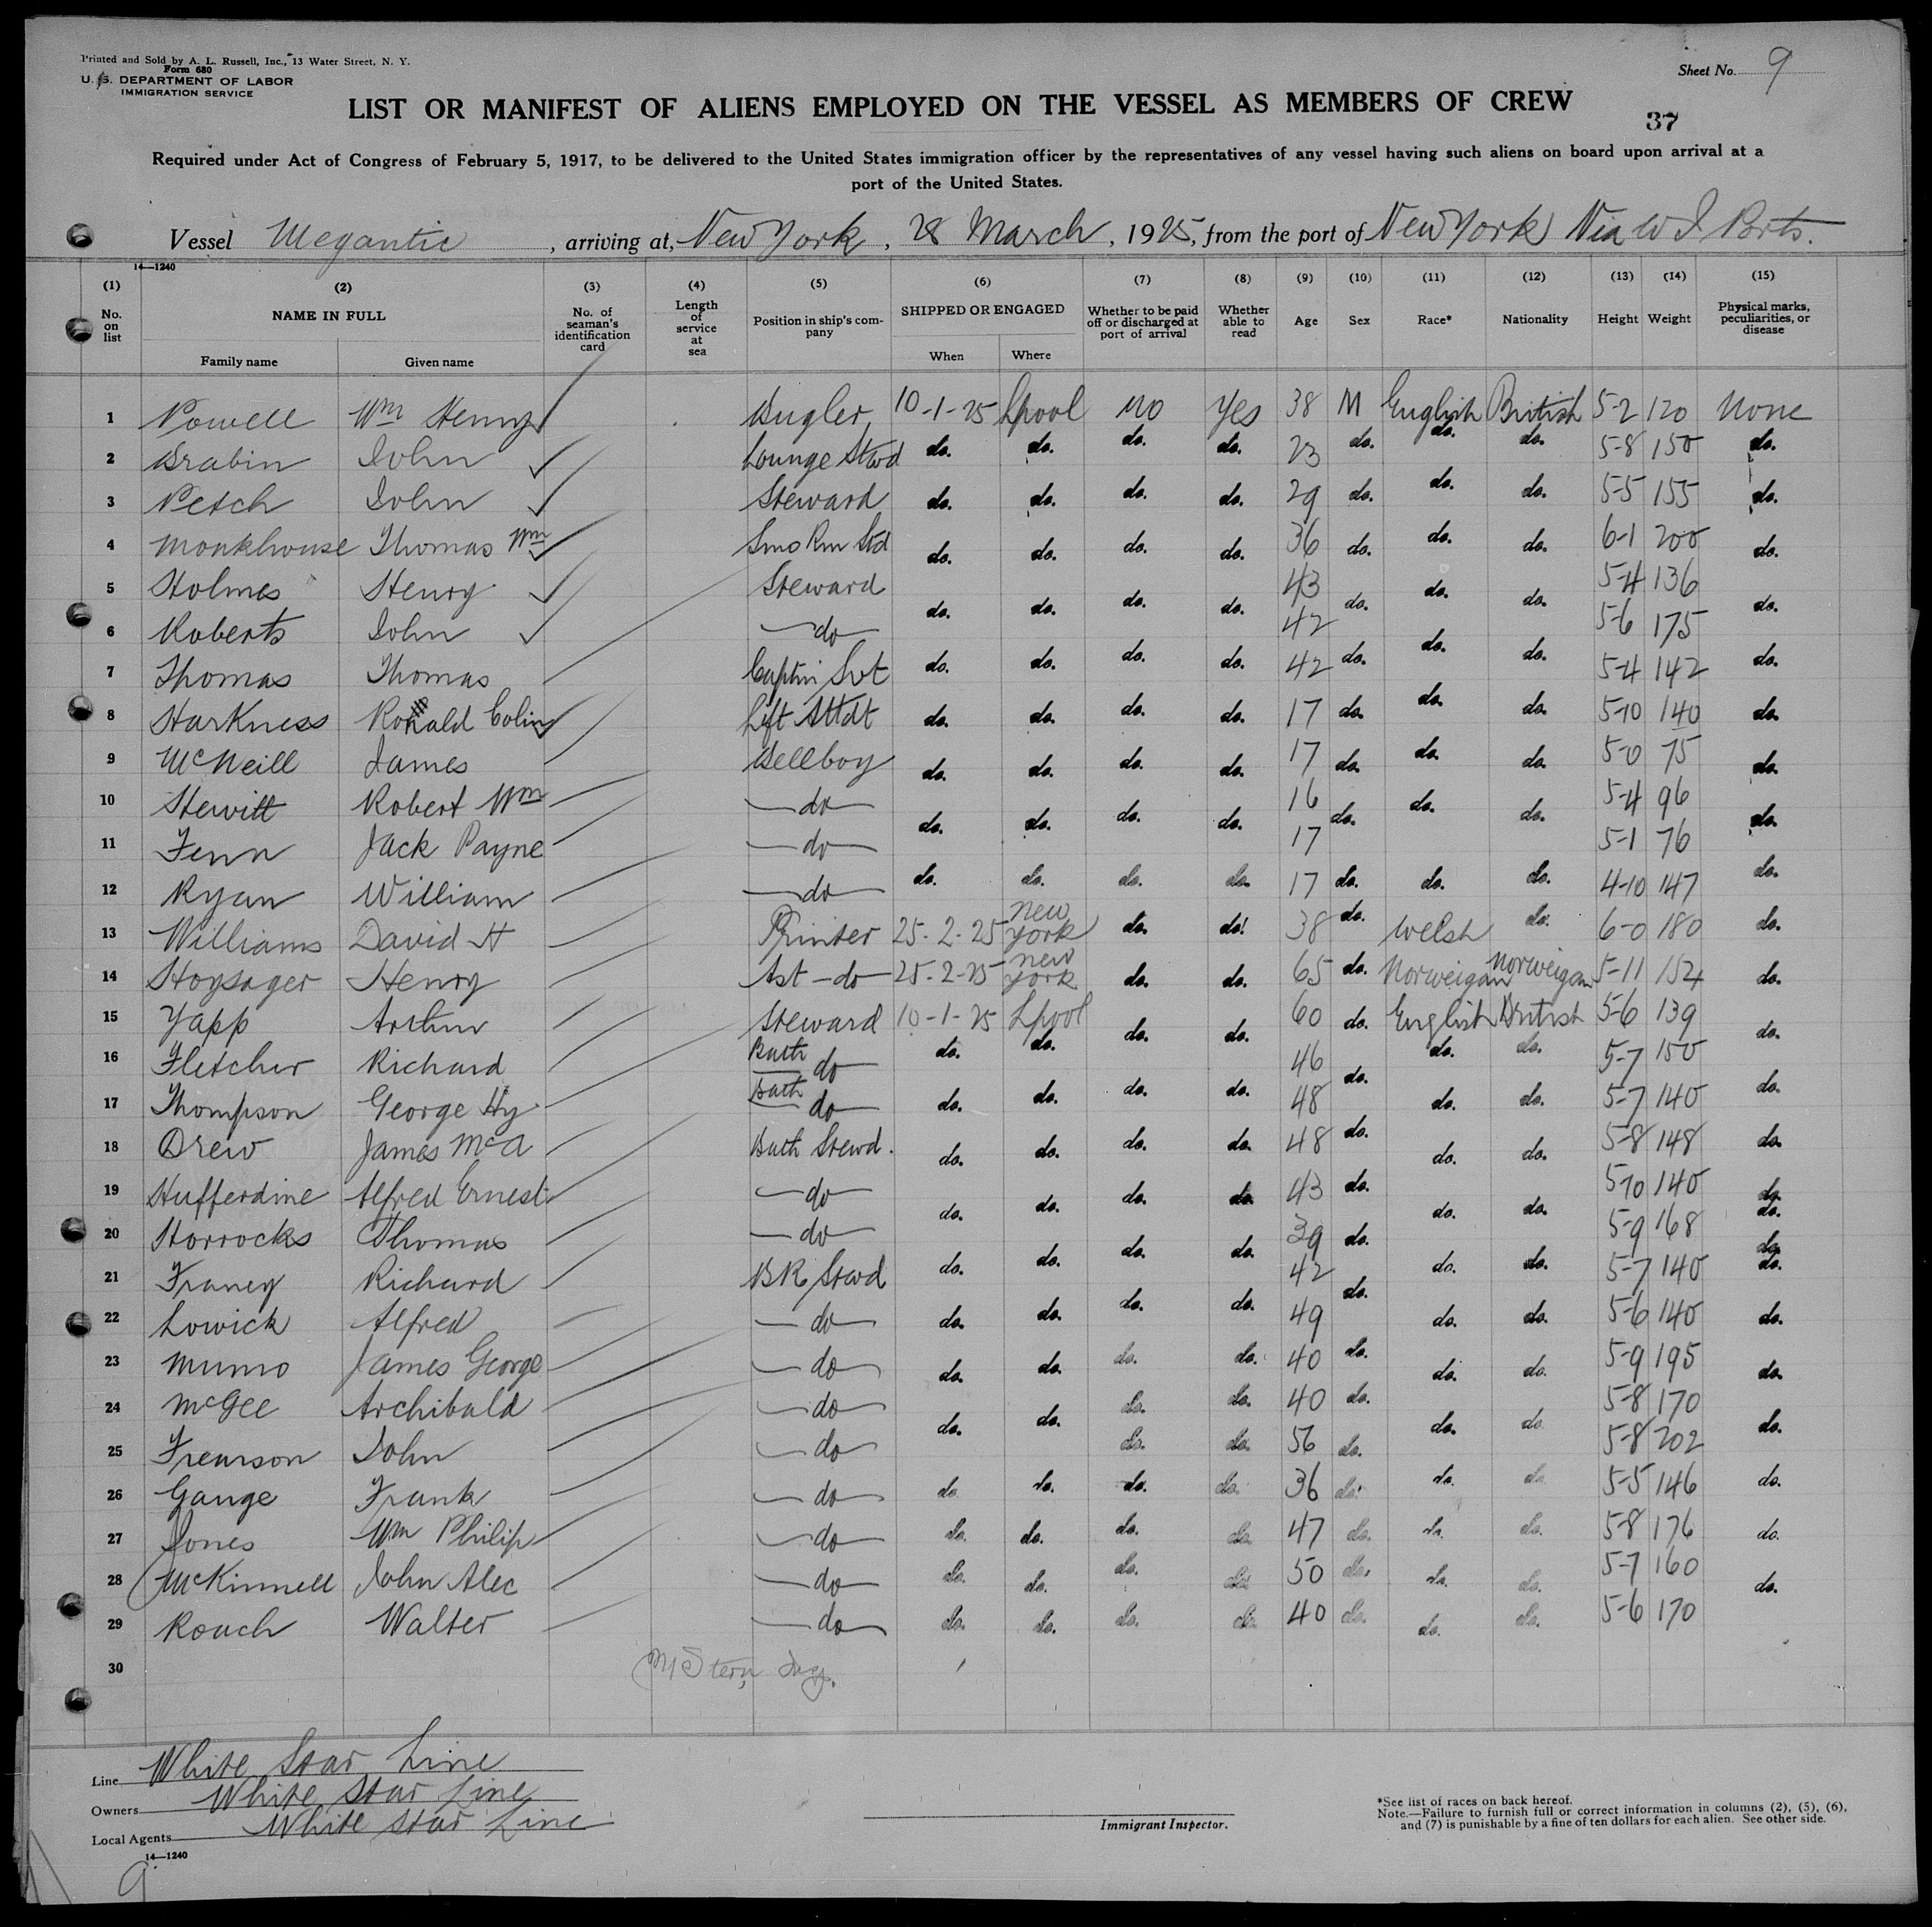 Printed and Sold by A. L. Russell, Inc., 13 Water Street, N. Y.
Form 680
U. S. DEPARTMENT OF LABOR
IMMIGRATION SERVICE
Sheet No. 9
LIST OR MANIFEST OF ALIENS EMPLOYED ON THE VESSEL AS MEMBERS OF CREW
37
Required under Act of Congress of February 5, 1917, to be delivered to the United States immigration officer by the representatives of any vessel having such aliens on board upon arrival at a
port of the United States.
Vessel Megantic, arriving at, New York, 28 March, 1925, from the port of New York Via W I Ports.
14—1240
(1) (2) (3) (4) (5) (6) (7) (8) (9) (10) (11) (12) (13) (14) (15)
No. on list NAME IN FULL No. of seaman's identification card Length of service at sea Position in ship's company SHIPPED OR ENGAGED Whether to be paid off or discharged at port of arrival Whether able to read Age Sex Race* Nationality Height Weight Physical marks, peculiarities, or disease
Family name Given name When Where
1 Powell Wm Henry Bugler 10-1-25 Lpool No Yes 38 M English British 5-2 120 None
2 Brabin John Lounge Stwd do. do. do. do. 23 do. do. do. 5-8 150 do.
3 Petch John Steward do. do. do. do. 29 do. do. do. 5-5 155 do.
4 Monkhouse Thomas Wm Smo Rm Std do. do. do. do. 36 do. do. do. 6-1 200 do.
5 Holmes Henry Steward do. do. do. do. 43 do. do. do. 5-4 136 do.
6 Roberts John do 42 5-6 175
7 Thomas Thomas Captn Svt do. do. do. do. 42 do. do. do. 5-4 142 do.
8 Harkness Ronald Colin Lift Attdt do. do. do. do. 17 do. do. do. 5-10 140 do.
9 McNeill James Bellboy do. do. do. do. 17 do. do. do. 5-0 75 do.
10 Hewitt Robert Wm do 16 do. 5-4 96
11 Fenn Jack Payne do do. do. do. do. 17 do. do. 5-1 76 do.
12 Ryan William do do. do. do. do. 17 do. do. do. 4-10 147 do.
13 Williams David H Printer 25-2-25 New York do. do. 38 do. Welsh do. 6-0 180 do.
14 Hoysager Henry Ast do 25-2-25 New York do. do. 65 do. Norweigan Norweigan 5-11 154 do.
15 Yapp Arthur Steward 10-1-25 Lpool do. do. 60 do. English British 5-6 139 do.
16 Fletcher Richard Bath do do. do. 46 do. do. do. 5-7 150
17 Thompson George Hy Bath do do. do. do. do. 48 do. do. 5-7 140 do.
18 Drew James McA Bath Stewd. do. do. do. do. 48 do. do. do. 5-8 148 do.
19 Hufferdine Alfred Ernest do do. do. do. do. 43 do. do. do. 5-10 140 do. do.
20 Horrocks Thomas do do. do. 39 do. 5-9 168 do.
21 Franey Richard BR Stwd do. do. 42 do. do. do. 5-7 140 do.
22 Lowick Alfred do do. do. do. do. 49 do. do. 5-6 140 do.
23 Munro James George do do. do. do. do. 40 do. do. do. 5-9 195 do.
24 McGee Archibald do do. do. do. do. 40 do. do. do. 5-8 170 do.
25 Frearson John do do. do. 56 do. 5-8 202
26 Gange Frank do do. do. do. do. 36 do. do. do. 5-5 146 do.
27 Jones Wm Philip do do. do. do. do. 47 do. do. do. 5-8 176 do.
28 McKinnell John Alec do do. do. do. do. 50 do. do. do. 5-7 160 do.
29 Roach Walter do do. do. do. do. 40 do. do. do. 5-6 170
30
Line White Star Line
Owners White Star Line
Local Agents White Star Line
Immigrant Inspector.
*See list of races on back hereof.
Note.—Failure to furnish full or correct information in columns (2), (5), (6),
and (7) is punishable by a fine of ten dollars for each alien. See other side.
14—1240
9